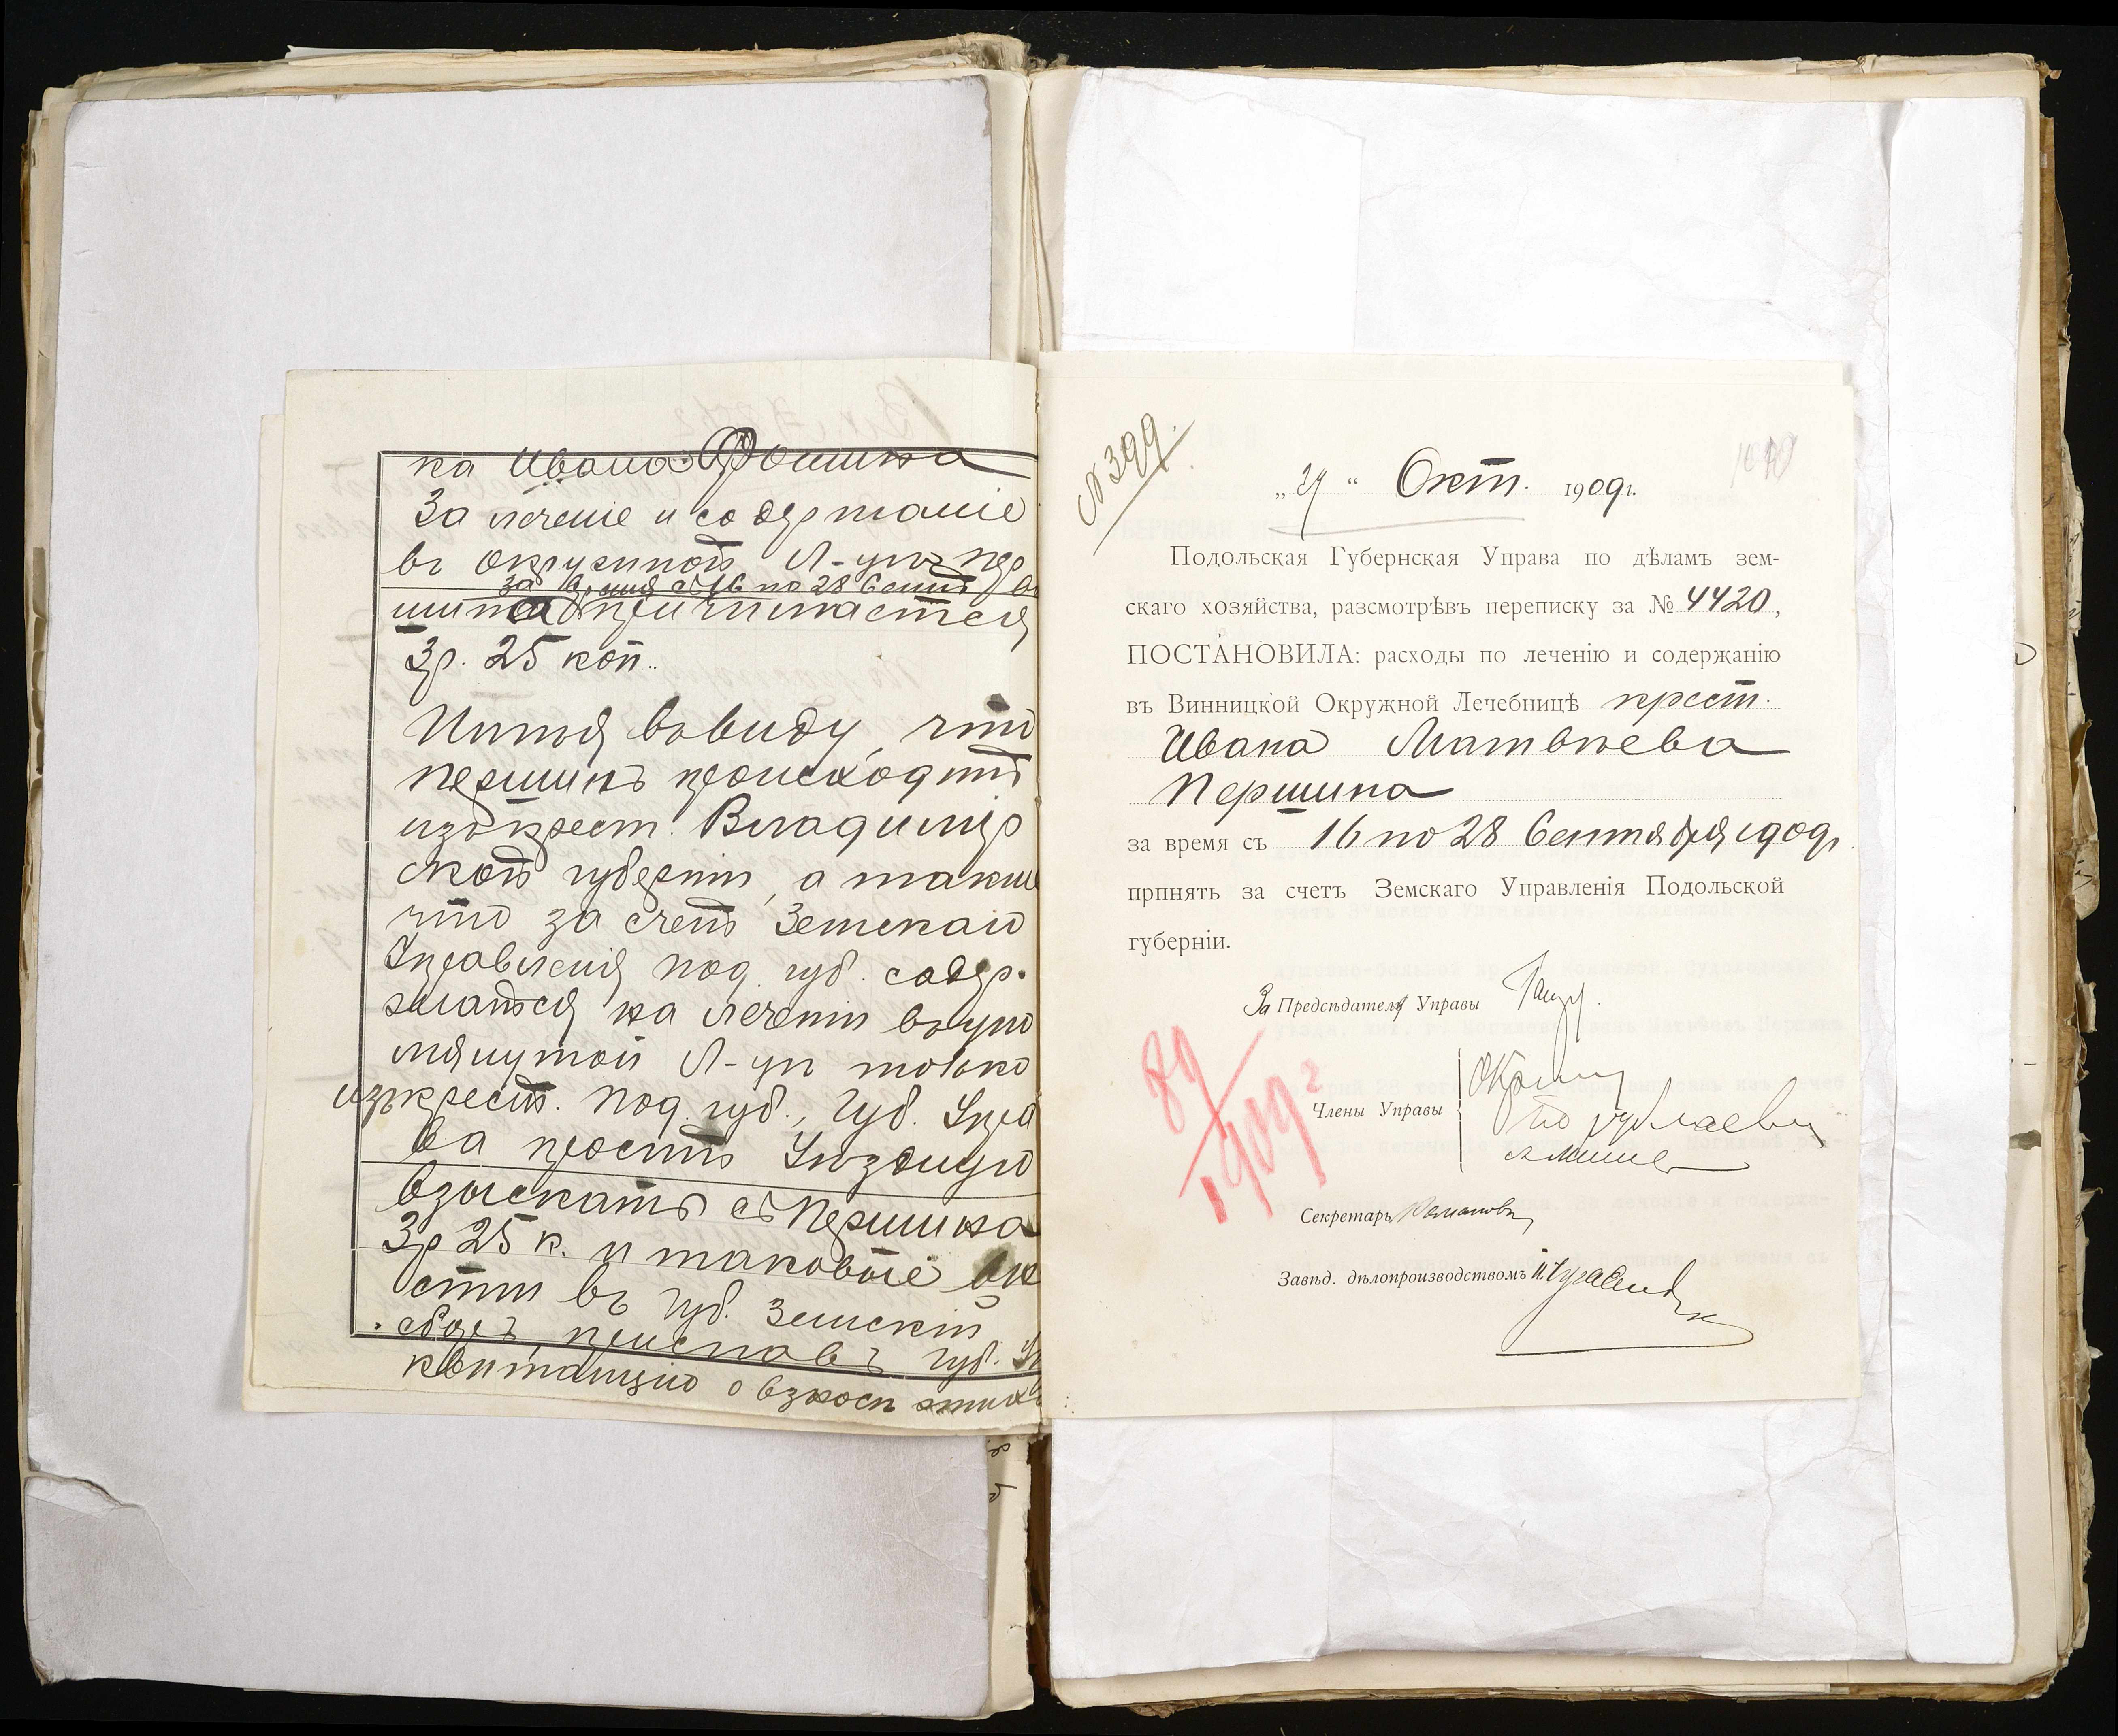 ка Ивана
За лечение и содержание
въ окружной Л-цѣ пер
за время съ 16 по 28 Сент
шина причитается
3 р. 25 коп.
Имѣя въ виду, что
Першинъ происходитъ
изъ крест. Владимір
ской губерніи, а также
что за счетъ Земскаго
Управленія Под. губ. содер-
жатся на леченіи въ упо
мянутой Л-цѣ только
изъ крест. Под. губ., Губ. Упра
ва проситъ Уѣздную
взыскать съ Першина
3 р 25 к. и таковые вне
сти въ Губ. Земскій
сборъ, приславъ Губ. Уп
квитанцію о взносѣ этихъ
№ 399.
„29“ Окт. 1909 г.
Подольская Губернская Управа по дѣламъ зем-
скаго хозяйства, разсмотрѣвъ переписку за № 4420,
ПОСТАНОВИЛА: расходы по леченію и содержанію
въ Винницкой Окружной Лечебницѣ крест.
Ивана Матвѣева
Першина
за время съ 16 по 28 Сентября 1909 г.
принять за счетъ Земскаго Управленія Подольской
губерніи.
За Предсѣдателя Управы
Члены Управы
Секретарь
Завѣд. дѣлопроизводствомъ